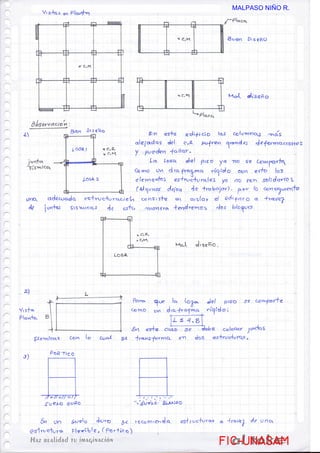 MALPASO NIÑO R.
Vistas en Planta
Placa
• C.M
Buen Diseño
• C.M
• C.M
Mal diseño
Placa
Observación:
1)
Buen Diseño
LOSA 1
• C.R.
• C.M.
junta
Sísmica
LOSA 2
En este edificio las columnas más
alejadas del C.R. sufren grandes deformaciones
y pueden fallar.
La losa del piso ya no se comporta
como un diafragma rígido con esto los
elementos estructurales ya no son solidarios
(Algunos dejan de trabajar), por lo consiguiente
una adecuada estructuración consiste en aislar el edificio a través
de juntas sísmicas de esta manera tendremos dos bloques
• C.R.
• C.M
LOSA
Mal diseño.
2)
L
Vista
Planta
B
Para que la losa del piso se comporte
como un diafragma rígido:
L ≤ 4.B
En este caso se debe colocar juntas
sísmicas con lo cual se transforma en dos estructuras.
3)
PORTICO
SUELO DURO
SUELO BLANDO
En un suelo duro se recomienda estructurar a través de una
estructura flexible, (Portico)
Haz realidad tu imaginación
FIC-UNASAM